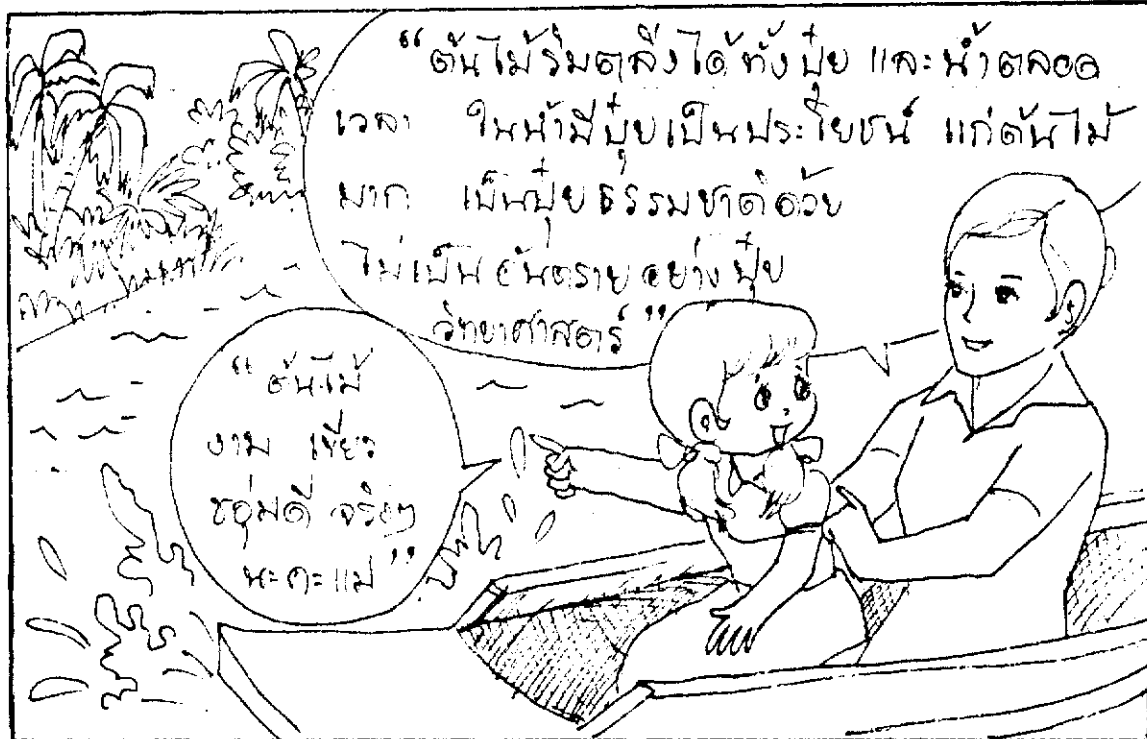 “ต้นไม้ริมตลิ่งได้ทั้งปุ๋ย และน้ำตลอด
เวลา ในน้ำมีปุ๋ยเป็นประโยชน์ แก่ต้นไม้
มาก เป็นปุ๋ยธรรมชาติด้วย
ไม่เป็นอันตรายอย่างปุ๋ย
วิทยาศาสตร์”
“ต้นไม้
งาม เขียว
ชอุ่มดี จริงๆ
นะคะแม่”